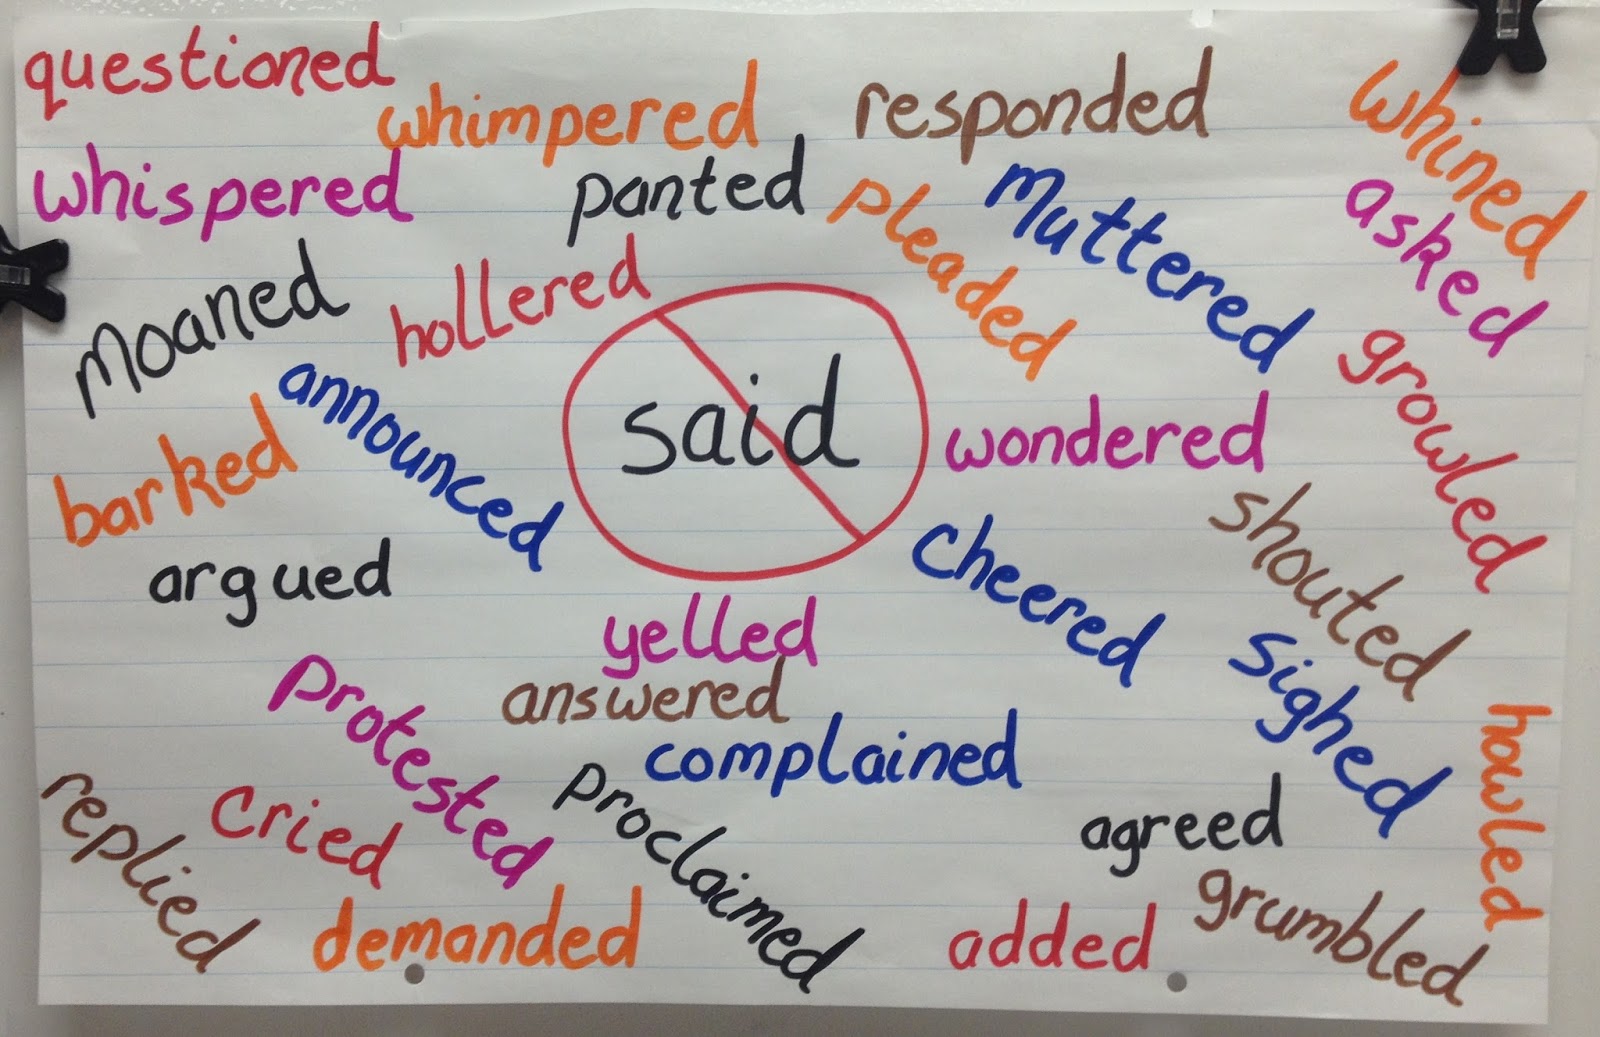 questioned
whimpered
responded
whined
whispered
panted
pleaded
Muttered
asked
Moaned
hollered
growled
announced
said
wondered
barked
shouted
argued
cheered
yelled
sighed
protested
answered
complained
howled
replied
cried
proclaimed
agreed
demanded
added
grumbled